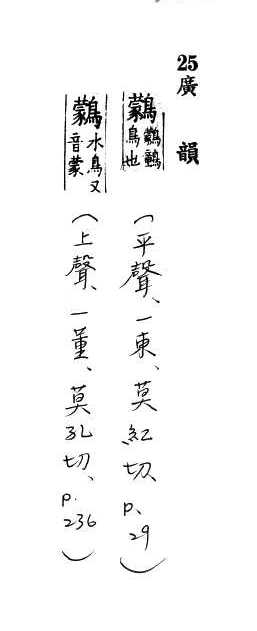 25廣 韻
鸏 鸏 鳥也 (平聲、一東、莫紅切、p、29)
鸏 水鳥又音蒙 (上聲、一董、莫孔切、p.236)